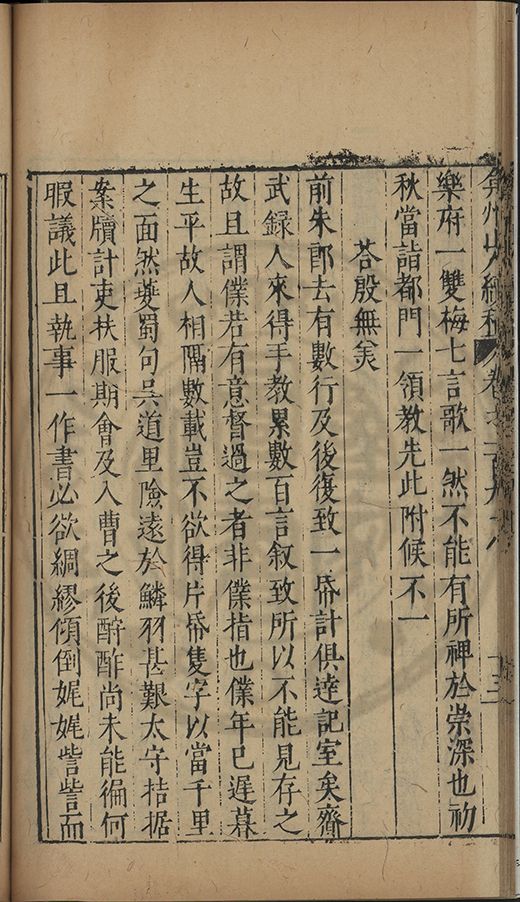 弇州山人續稿 卷之一百九十八 十三
樂府一雙梅七言歌一然不能有所裨於崇深也初
秋當詣都門一領教先此附候不一
荅殷無美
前朱郎去有數行及後復致一帋計俱達記室矣齊
武録人來得手教累數百言叙致所以不能見存之
故且謂僕若有意督過之者非僕指也僕年已遲暮
生平故人相隔數載豈不欲得片帋隻字以當千里
之面然夔蜀句吳道里險遠於鱗羽甚艱太守拮据
案牘計吏扶服期會及入曹之後酧酢尚未能徧何
暇議此且執事一作書必欲綢繆傾倒娓娓訾訾而